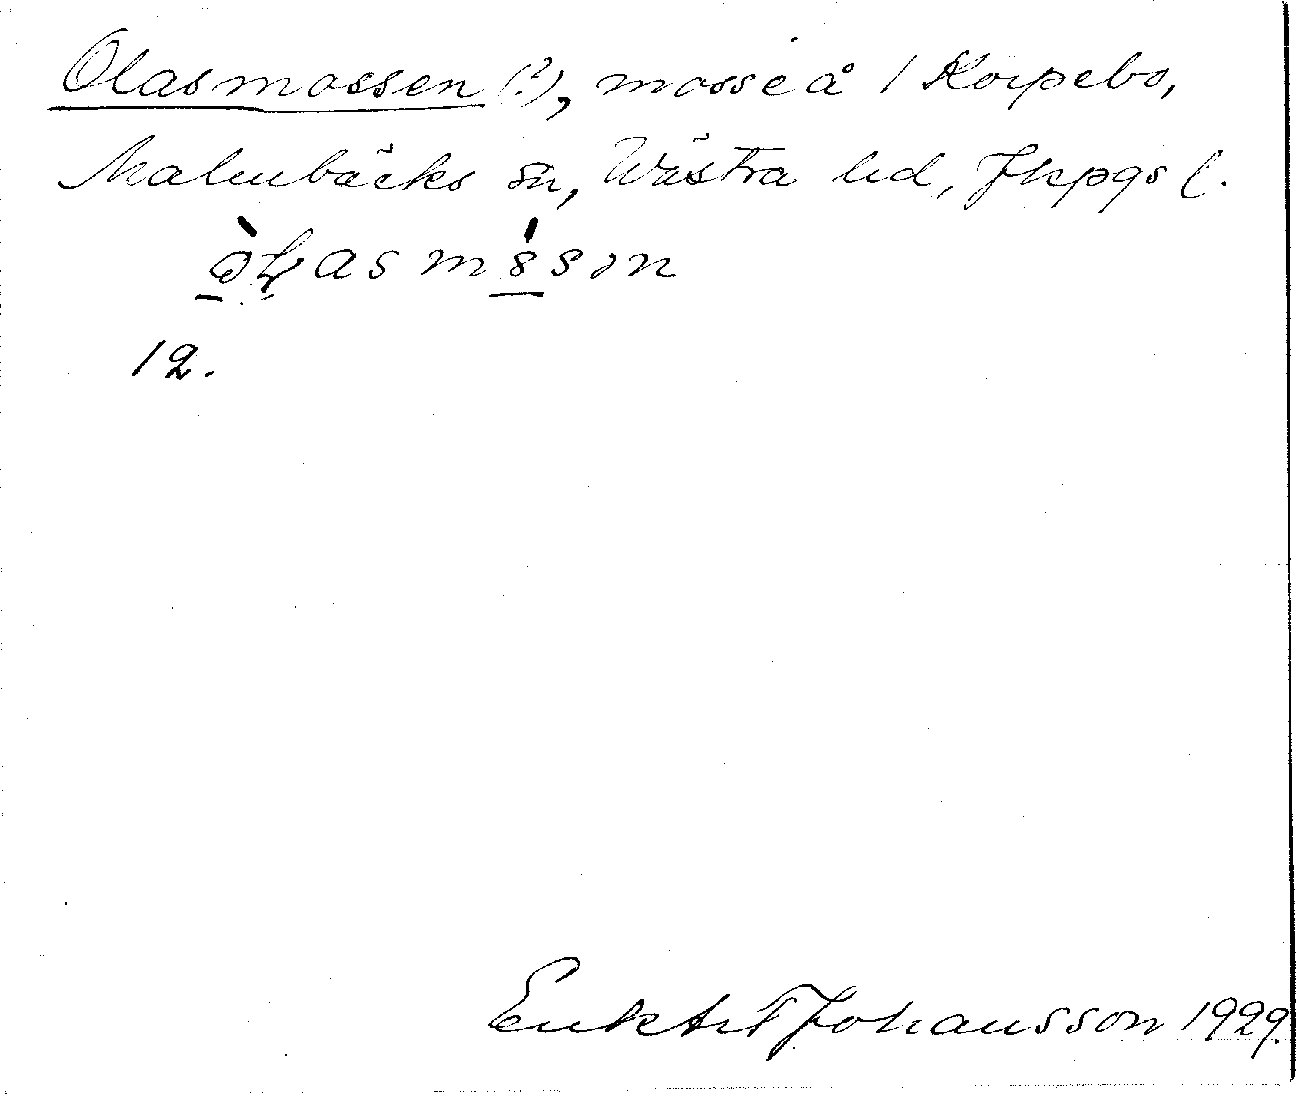 Olasmossen (?), mosse å / Korpebo,
Malmbäcks sn, Västra hd, Jkpgs l.
12.
Erik Art Johansson 1929.